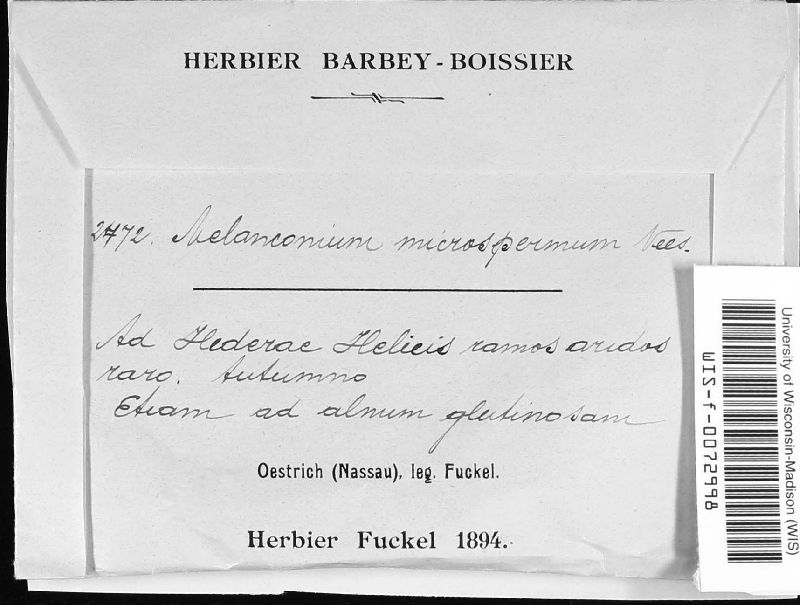 HERBIER BARBEY-BOISSIER
2472. Melanconium microspermum Nees.
Ad Hederae Helicis ramos aridos
raro. Autumno
Etiam ad alnum glutinosam
Oestrich (Nassau), leg. Fuckel.
Herbier Fuckel 1894.
University of Wisconsin-Madison (WIS)
WIS-f-0072998